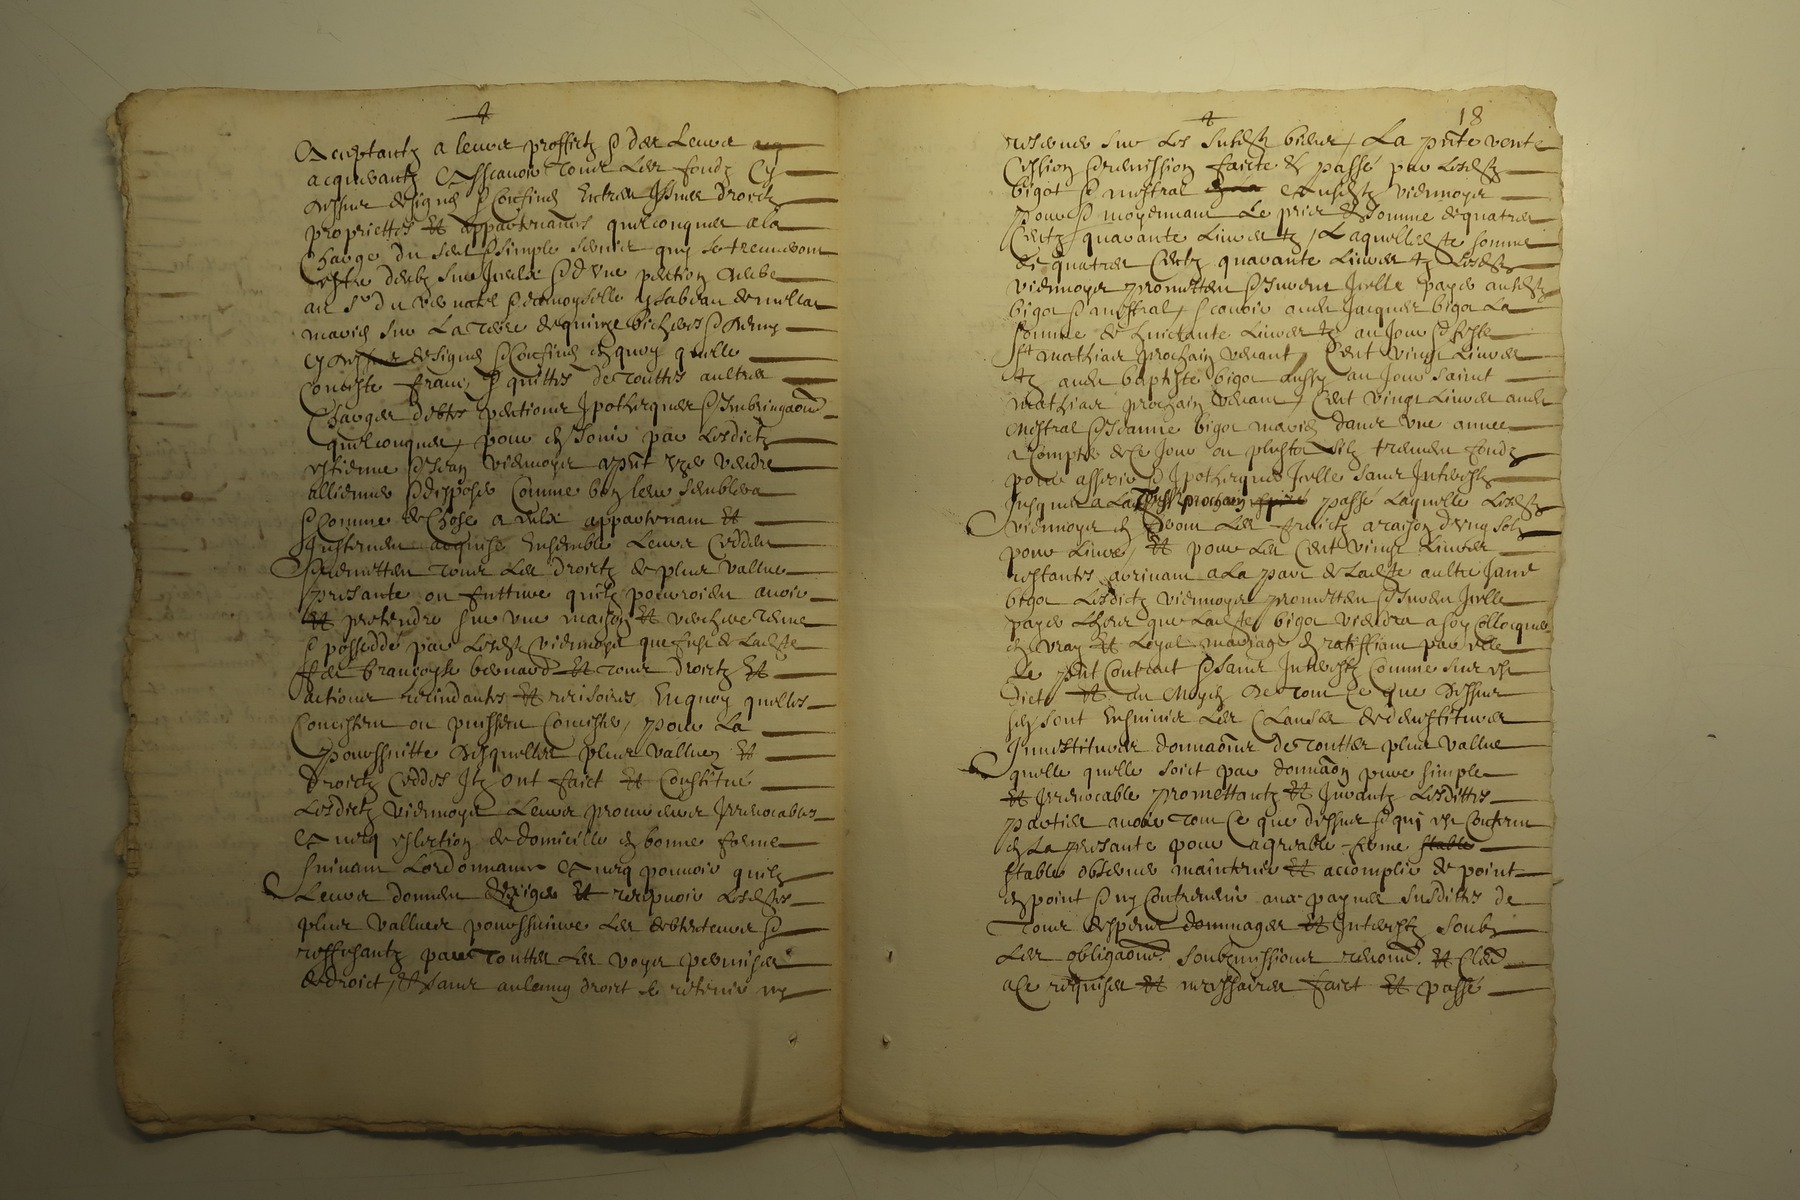 Acceptantz a leurs proffictz & des Leurs
acquerantz Asscavoir Tous Les fondz Cy
dessus designés & Confinés Entrees Issues droictz
proprietés Et appartenances quelconques a la
Charge du seul & simple servis quy se treuveront
estre deubz sur Iceulx & d'une pention
au Sr du & damoyselle ysabeau de
mariés sur La Terre de quinze bicherés & demy
Cy dessus designés & Confinés en quoy quelle
Conciste francz & quittes de Touttes aultres
Charges debtes pentions Ipotheques &
quelconques, pour en Jouir par Lesdictz
estienne & Jean viermoyes vendre
alliener & disposer Comme bon leur semblera
& Comme de Chose a eulx appartenant Et
Justement acquise Ensemble Leurs Ceddent
& Remettent Tous Les droictz de plus vallue
presante ou futture quilz pourroient avoir
Et pretendre sur une maison Et
& possedde par Lesdz viermoyes que fust de Ladte
francoyse bernard Et Tous droictz Et
actions rescindantes Et rescisoires En quoy quelles
Concistent ou puissent Concister, pour La
poursuitte desquelles plus vallues Et
droictz Ceddes Ilz ont faict Et Constitué
Lesdictz viermoyes Leurs procureurs Irrevocables
Avecq eslection de domicille en bonne forme
suivant Lordonnance Avecq pouvoir quilz
Leurs donnent dexiger Et recepvoir Lesdtes
plus vallues poursuivre Les debteurs &
reffusantz par Touttes Les voyes permises
de droict, Et sans aulcung droict se retenir ny
18
reserver sur Les susdz biens, La pnte vente
Cession & remission faicte & passé par Lesdz
bigot & mistral Ausdz viermoyes
pour & moyennant Le pris & somme de quatre
Centz quarante Livres tz, Laquelle dte somme
de quatre Centz quarante Livres tz Lesdz
viermoyes promettent & Jurent Icelle payer ausdz
bigot & mistral, scavoir audt Jacques bigot La
somme de huictante Livres tz au Jour & feste
St mathias prochain venant, Cent vingt Livres
tz audt baptiste bigot aussy au Jour sainct
mathias prochain venant, Cent vingt Livres audt
mistral & Jeanne bigot mariés dans une annee
a Compter de Ce Jour ou plustost silz treuvent fondz
pour asseoir & Ipothequer Icelle sans Interestz
Jusques a La feste prochain passé Laquelle Lesdz
viermoyes en feront Les fruictz a raison d'ung solz
pour Livre, Et pour Les Cent vingt Livres
restantes arrivant a La part de Ladte aultre Jane
bigot Lesdictz viermoyes promettent & Jurent Icelle
payer Lhors que Ladte bigot viendra a soy Collocquer
en vray Et Loyal mariage en ratiffiant par elle
Le pnt Contract & sans Interestz Comme sus est
dict Et au Moyen de Tout Ce que dessus
sy sont Ensuivies Les Clauses de devestitures
Investitures donnaons de Touttes plus vallue
quelle quelle soict par donnaon pure simple
Et Irrevocable promettantz Et Jurantz Lesdittes
parties avoir Tout Ce que dessus & qui est Contenu
en La presante pour agreable ferme stable
stable observer maintenir Et accomplir de point
en point & ny Contrevenir aux paynes susdittes de
Tous despens dommages Et Interestz soubz
Les obligaons soubzmissions renonons Et Clauses
a Ce requises Et necessaires faict Et passé